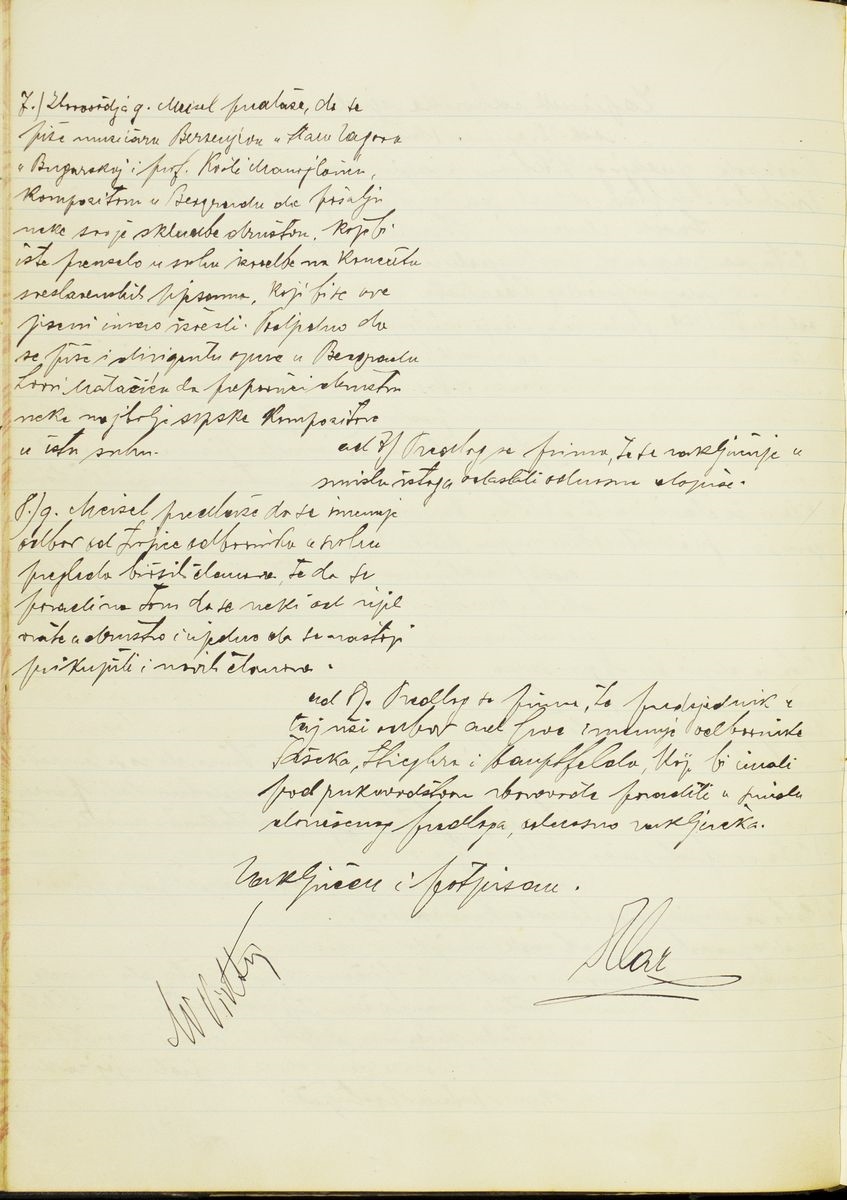 7.) Zborovodja g. Meisel predlaže, da se
piše muzičaru u Stara Zagora
u Bugarskoj i prof. Kosti Manojloviću,
kompozitoru u Beogradu da pošalju
neke svoje skladbe društvu, koje bi
iste preuzelo u svrhu izvedbe na koncertu
sveslavenskih pjesama, koji bi se ove
jeseni imao izvesti. Podjedno da
se piše i dirigentu opere u Beogradu
Lovri Matačiću da preporuči društvu
neke najbolje srpske kompozitore
u istu svrhu.
ad 7) Predlog se prima, te se zaključuje u
smislu istoga odaslati odnosne dopise.
8.) g. Meisel predlaže da se imenuje
odbor od trojice odbornika u svrhu
pregleda bivših članova, te da se
poradi na tom da se neki od njih
vrate u društvo i ujedno da se nastoji
prikupiti i novih članova.
ad 8). Predlog se prima, te predsjednik u
taj uži odbor imenuje odbornike
Šašeka, Stieglera i Hauptfelda, koji bi imali
pod rukovodstvom zborovođe poraditi u smislu
donešenog predloga, odnosno zaključka.
Zaključeno i potpisano.